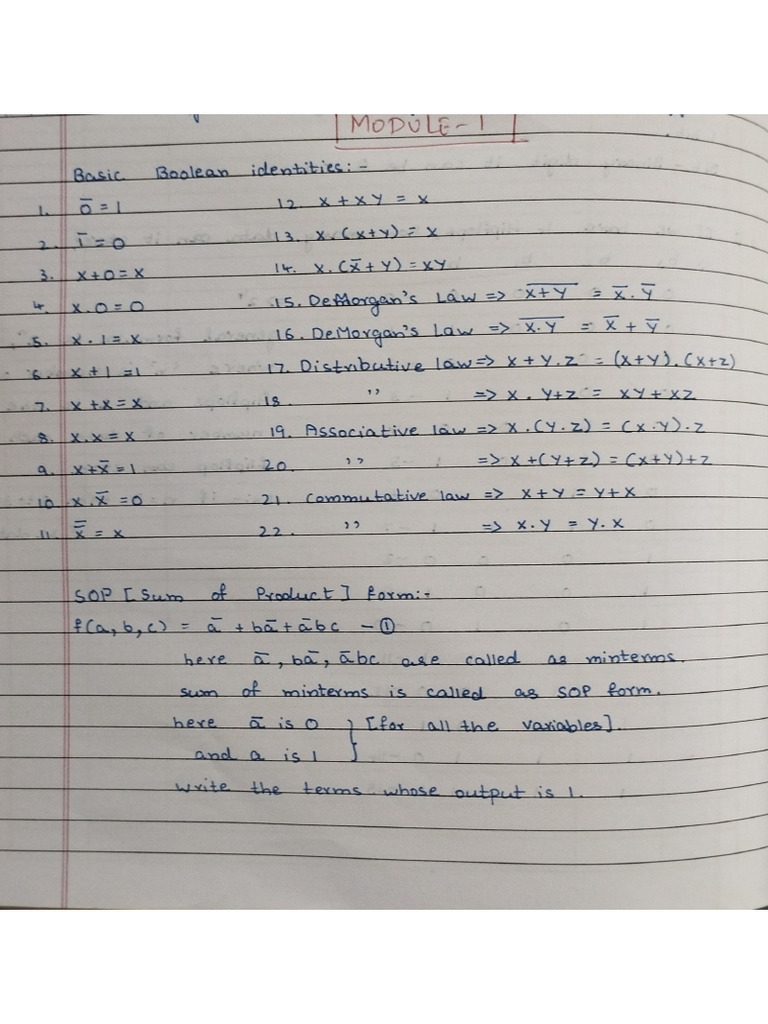 MODULE-1
Basic Boolean identities:-
1. 0̅ = 1
2. 1̅ = 0
3. x+0=x
4. x.0=0
5. x.1=x
6. x+1=1
7. x+x=x
8. x.x=x
9. x+x̅=1
10. x.x̅=0
11. x̿ = x
12. x+xy = x
13. x.(x+y)=x
14. x.(x̅+y)=xy
15. DeMorgan's Law => \overline{x+y} = x̅.y̅
16. DeMorgan's Law => \overline{x.y} = x̅+y̅
17. Distributive law=> x+y.z = (x+y).(x+z)
18. " => x.y+z = xy+xz
19. Associative law => x.(y.z) = (x.y).z
20. " => x+(y+z) = (x+y)+z
21. Commutative law => x+y = y+x
22. " => x.y = y.x
SOP [Sum of Product] form:-
f(a,b,c) = a̅ + ba̅ + a̅bc -①
here a̅, ba̅, a̅bc are called as minterms.
sum of minterms is called as SOP form.
here a̅ is 0 } [for all the variables].
and a is 1
write the terms whose output is 1.